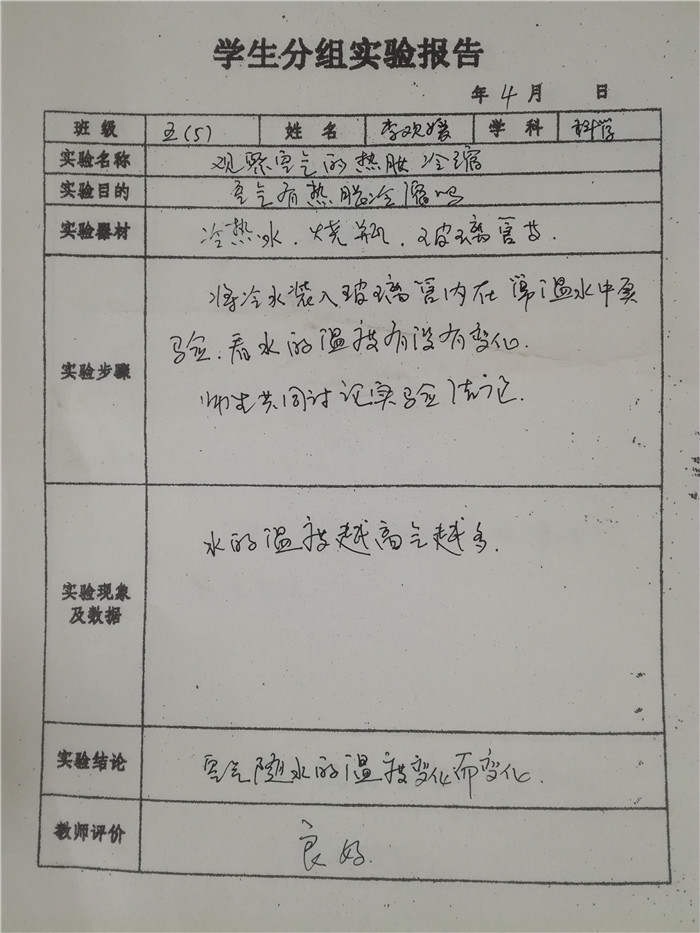 学生分组实验报告
年 4 月 日
班 级 五(5) 姓 名 李欢媛 学 科 科学
实验名称 观察空气的热胀冷缩
实验目的 空气有热胀冷缩吗
实验器材 冷热水、烧瓶、玻璃管等.
实验步骤
将冷水装入玻璃管内在 温水中实
验、看水的温度有没有变化.
师生共同讨论实验结论.
实验现象
及数据
水的温度越高气越多.
实验结论 空气随水的温度变化而变化.
教师评价 良好.